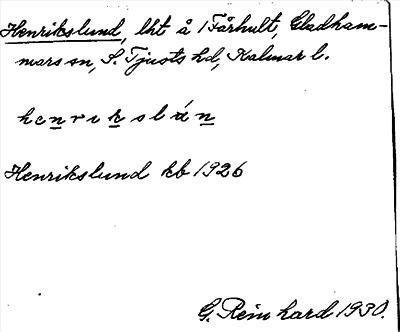 Henrikslund, lht å 1 Fårhult, Gladham-
mars sn, S. Tjusts hd, Kalmar l.
henrikslán
Henrikslund kb 1926
G. Reinhard 1930.